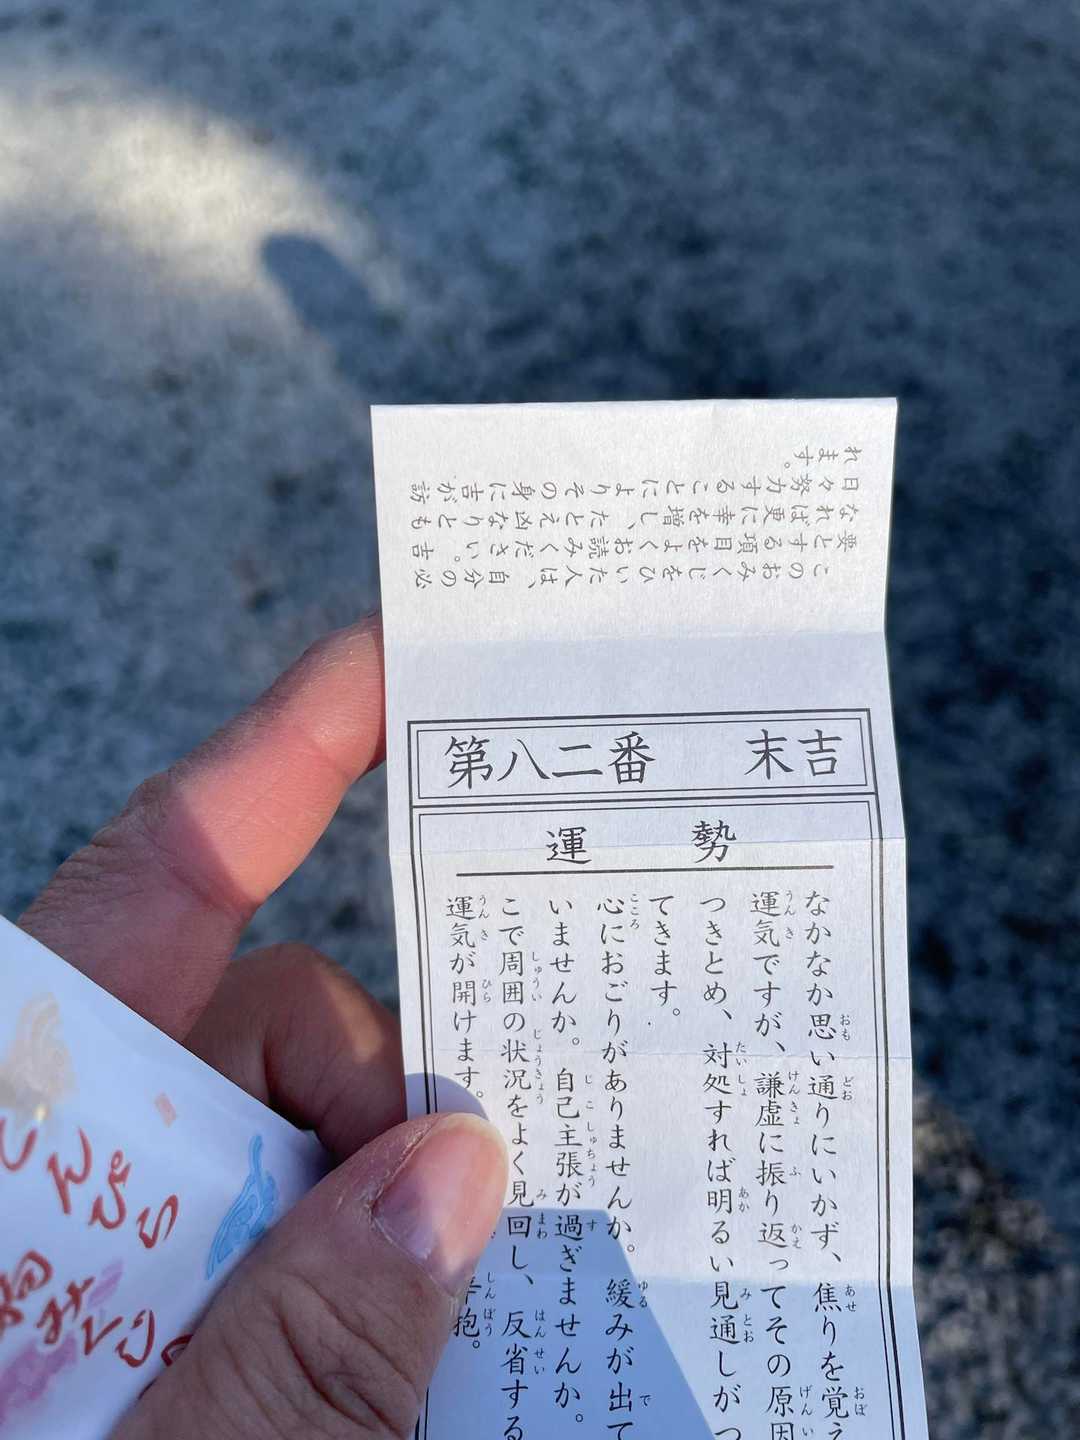 このおみくじをひいた人は、自分の必
要とする項目をよくお読みください。吉
なれば更に幸を増し、たとえ凶なりとも
日々努力することによりその身に吉が訪
れます。
第八二番 末吉
運勢
なかなか思い通りにいかず、焦りを覚え
運気ですが、謙虚に振り返ってその原因
つきとめ、対処すれば明るい見通しがつ
てきます。
心におごりがありませんか。緩みが出て
いませんか。自己主張が過ぎませんか。
こで周囲の状況をよく見回し、反省する
運気が開けます。
辛抱。
こんぴら